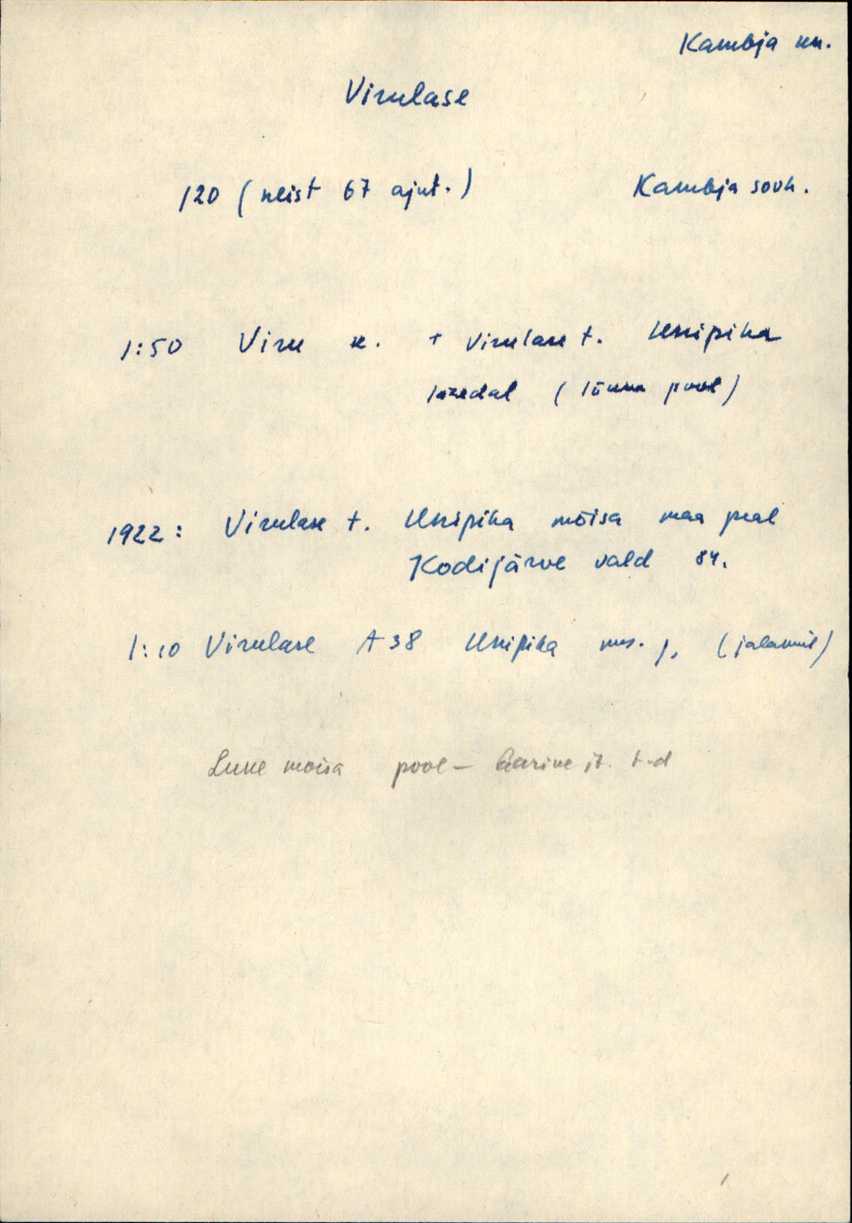 Kambja kn.
Virulase
120 (neist 67 ajut.) Kambja sovh.
1:50 Viru k. + Virulase t. Unipiha
lähedal (lõuna pool)
1922: Virulase t. Unipiha mõisa maa peal
Kodijärve vald 84.
1:10 Virulase A38 Unipiha ms. j. (jalamil)
Luke mõisa pool – t-d